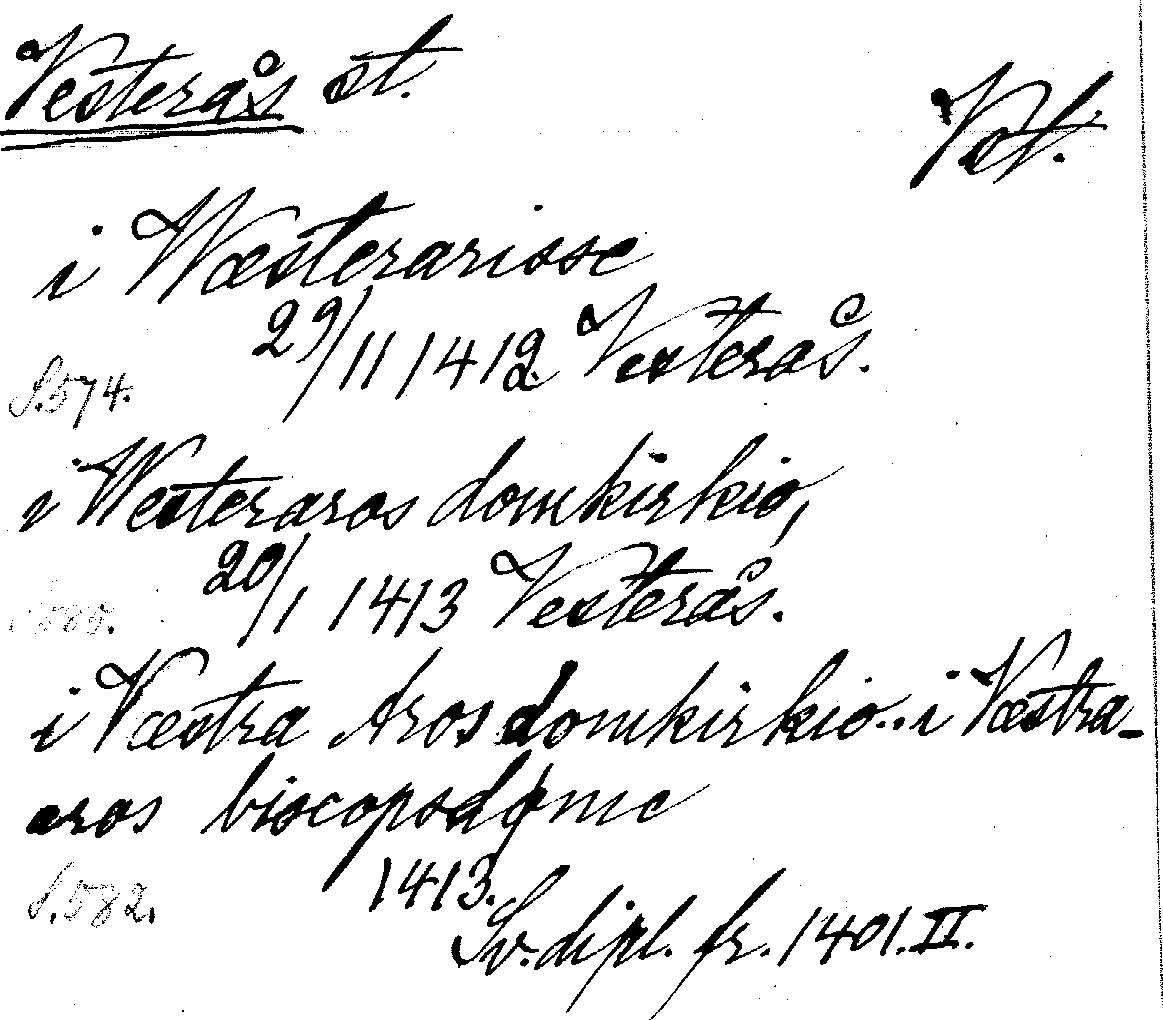 Vesterås st.
Vst.
i Wæsterarisse
29/11 1412 Vesterås.
S. 574.
i Westeraros domkirkio,
20/1 1413 Vesterås.
i Væstra Aros domkirkio.. i Væstra-
aros biscopsdøme
1413.
S. 582.
Sv. dipl. fr. 1401. II.